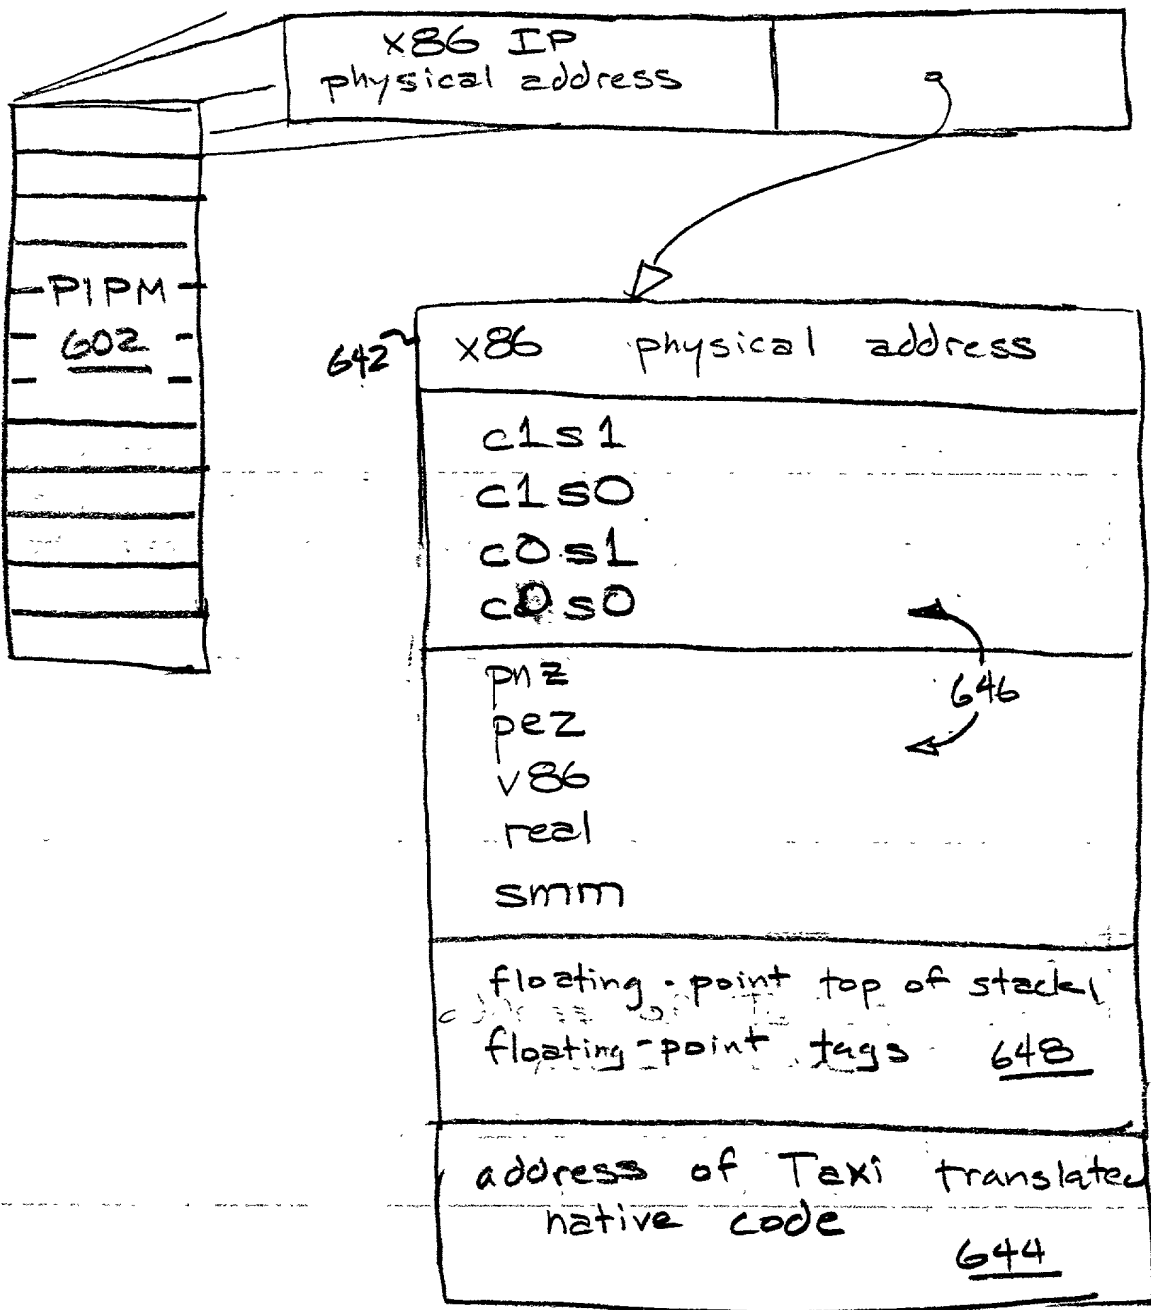 x86 IP
physical address
PIPM
602
642
x86 physical address
c1s1
c1s0
c0s1
c0s0
pnz
pez
v86
real
smm
646
floating-point top of stack,
floating-point tags 648
address of Taxi translated
native code
644